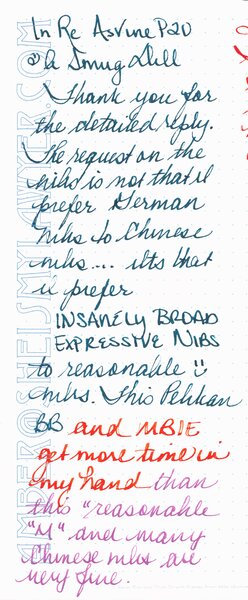 In Re AsVine P20
@a Smug Dill
Thank you for
the detailed reply.
The request on the
nibs is not that I
prefer German
nibs to Chinese
nibs... its that
I prefer
INSANELY BROAD
EXPRESSIVE NIBS
to reasonable
nibs. This Pelikan
BB and MBIE
get more time in
my hand than
this "reasonable
"M" and many
Chinese nibs are
very fine.
AMBEROSHEISMYLAWYER.COM